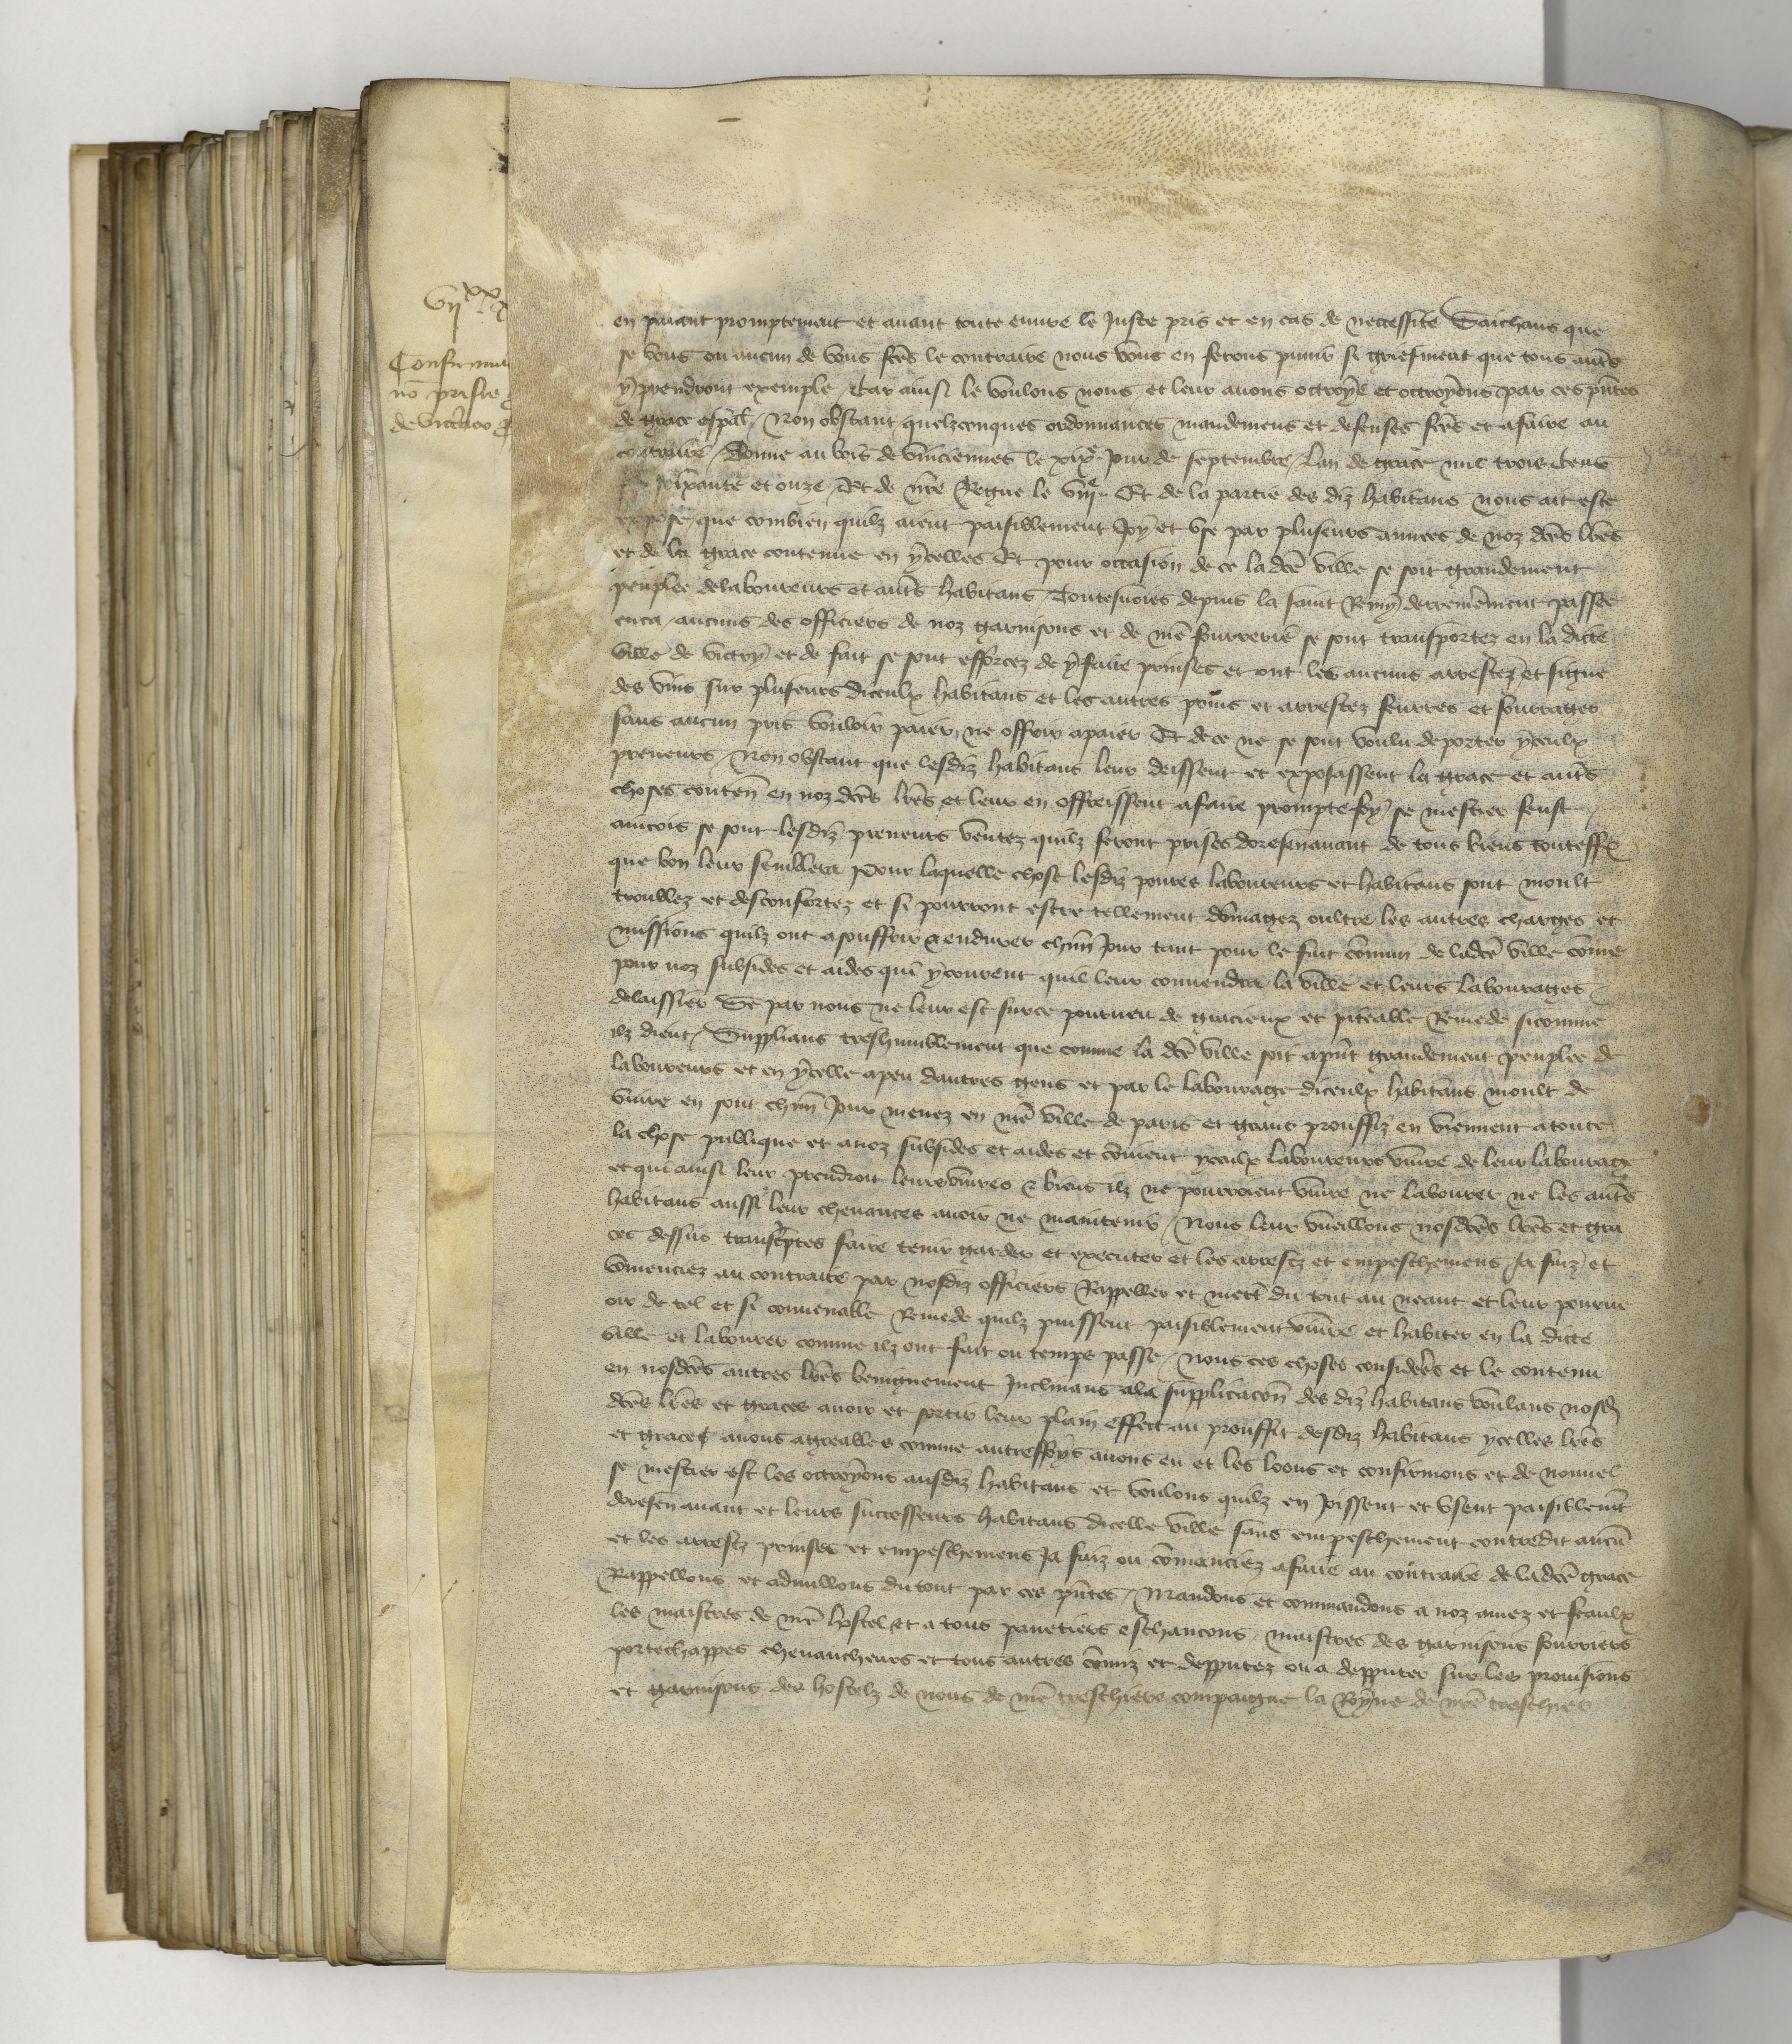 en paiant promptement et auant toute euure le Juste pris et en cas de necessite Saichans que
se vous ou aucun de vous fces le contraire nous vous en ferons punir si griefment que tous autres
y prendront exemple / Car ainsi le voulons nous et leur auons octroye et octroyons par ces pntes
de grace espal / Non obstant quelzconques ordonnances mandemens et defenses fces et afaire au
contraire / Donne au bois de vinciennes le xixe Jour de septembre / Lan de grace mil trois Cens
soixante et onze / Et de nre Regne le viije Et de la partie des diz habitans nous ait este
expose que combien quilz aient paisiblement Joy et vse par pluseurs annees de noz dces lres
et de la grace contenue en ycelles Et pour occasion de ce ladce ville se soit grandement
peuplee delaboureurs et autres habitans / Toutesuoies depuis la saint Remy derrenierement passee
enca / aucuns des officiers de noz garnisons et de nre fourrerie se sont transportez en la dicte
ville de victry et de fait se sont efforcez de y faire prinses et ont les aucuns arrestez et signe
des vins sur pluseurs diceulx habitans et les autres prins et arrestez feurres et fourrages
sans aucun pris vouloir paier ne offrir apaier Et de ce ne se sont voulu deporter yceulx
preneurs / Non obstant que lesdiz habitans leur deissent et exposassent la grace et autres
choses conten en noz dces lres et leur en offreissent afaire prompte foy se mestier feust /
aincois se sont lesdiz preneurs ventez quilz feront prises doresenauant de tous biens touteffoiz
que bon leur semblera Pour laquelle chose lesdiz poures laboureurs et habitans sont moult
troublez et desconfortez et si pourront estre tellement domagez oultre les autres charges et
missions quilz ont asouffrir & endurer chun Jour tant pour le fait comun de ladce ville come
pour noz subsides et aides qui ycourent quil leur conuendra la ville et leurs labourages
delaissier Se par nous ne leur est surce pourueu de gracieux et piteable Remede sicomme
ilz dient / Supplians treshumblement que comme la dce ville soit apnt grandement peuplee de
laboureurs et en ycelle apeu dautres gens et par le labourage diceulx habitans moult de
viure en sont chun Jour menez en nre ville de paris et grans prouffiz en viennent atoute
la chose publique et anoz subsides et aides et comient yceulx laboureurs viure de leur labourage
et qui ainsi leur prendroit leurs viures & biens ilz ne pourroient viure ne labourer ne les autres
habitans aussi leur cheuances auoir ne maintenir / Nous leur vueillons nosdces lres et gra
ces dessus transcriptes faire tenir garder et executer et les arrestz et empeschemens Ja faiz et
comenciez au contraire par nosdiz officiers Rappeller et mett du tout au neant et leur pourue
oir de tel et si conuenable Remede quilz puissent paisiblement viure et habiter en la dicte
ville et labourer comme ilz ont fait ou temps passe / Nous ces choses considerees et le contenu
en nosdces autres lres benignement Inclinans ala supplicacon des diz habitans voulans nosd
dces lres et graces auoir et sortir leur plain effect au prouffit desdiz habitans ycelles lres
et graces auons agreables comme autreffoys auons eu et les loons et confirmons et de nouuel
se mestier est les octroyons ausdiz habitans et voulons quilz en Joissent et vsent paisiblement
doresen auant et leurs successeurs habitans dicelle ville sans empeschement contredit aucun
et les arrestz prinses et empeschemens Ja faiz ou comanciez afaire au contraire de ladce grace
Rappellons et adnullons du tout par ces pntes / Mandons et commandons a noz amez et feaulx
les maistres de nre hostel et a tous panetiers eschancons / maistres des garnisons fourriers
portechappes cheuaucheurs et tous autres comiz et depputez ou a depputer sur les prouisions
et garnisons des hostelz de nous de nre treschiere compaigne la Royne de nre treschier
Confirma
no prisie
de victri